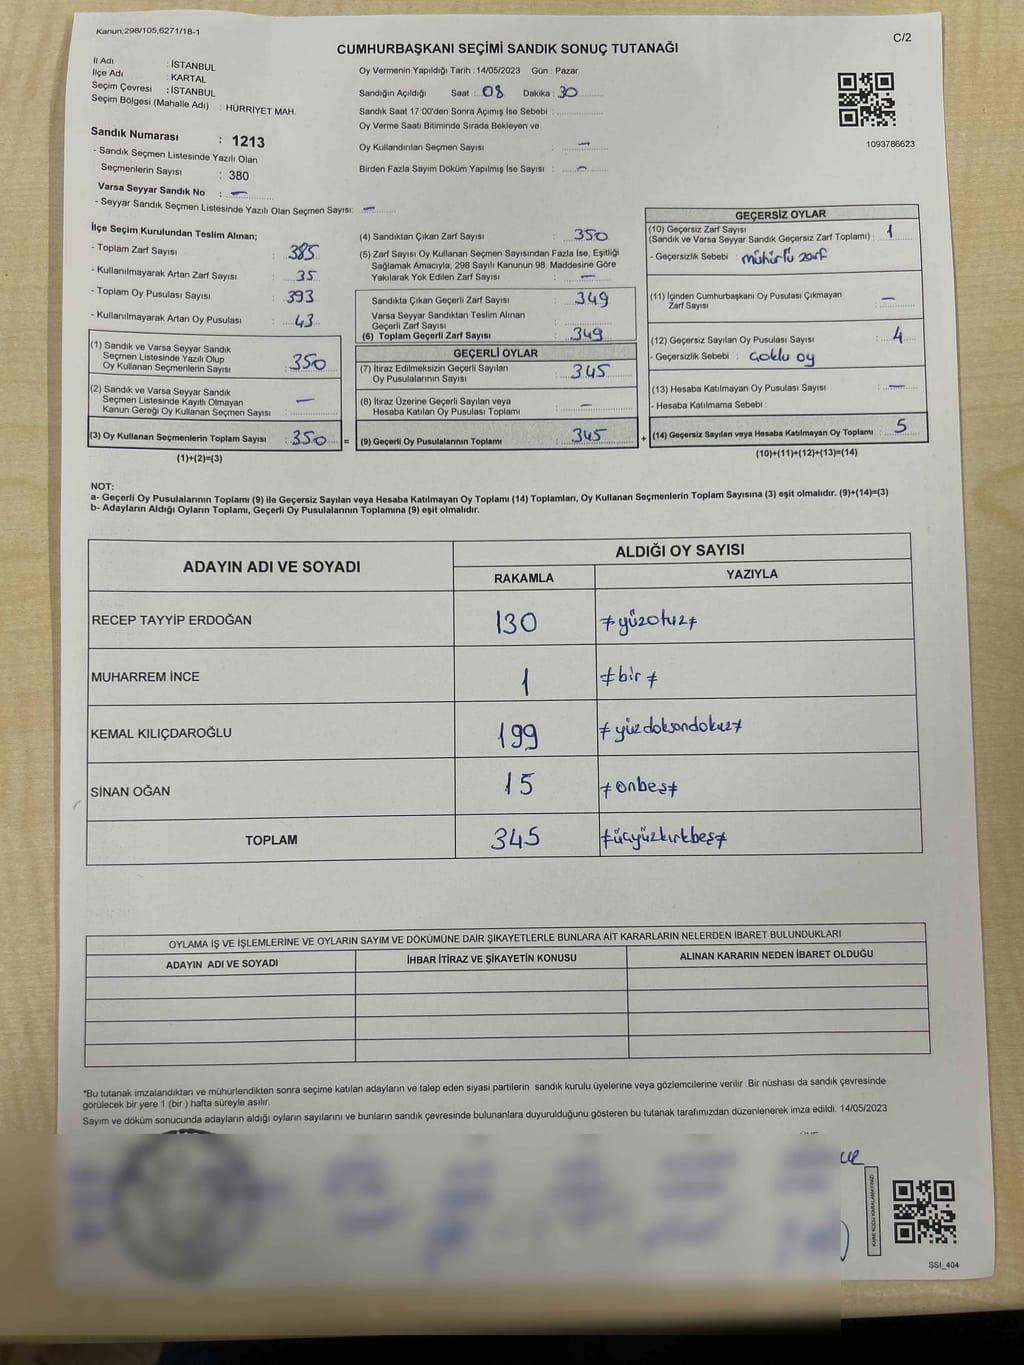 Kanun:298/105,6271/18-1
C/2
CUMHURBAŞKANI SEÇİMİ SANDIK SONUÇ TUTANAĞI
İl Adı : İSTANBUL
İlçe Adı : KARTAL
Seçim Çevresi : İSTANBUL
Seçim Bölgesi (Mahalle Adı) : HÜRRİYET MAH.
Sandık Numarası : 1213
- Sandık Seçmen Listesinde Yazılı Olan
Seçmenlerin Sayısı : 380
Varsa Seyyar Sandık No : —
- Seyyar Sandık Seçmen Listesinde Yazılı Olan Seçmen Sayısı: —
Oy Vermenin Yapıldığı Tarih : 14/05/2023 Gün : Pazar
Sandığın Açıldığı Saat : 08 Dakika : 30
Sandık Saat 17:00'den Sonra Açımış İse Sebebi :
Oy Verme Saati Bitiminde Sırada Bekleyen ve
Oy Kullandırılan Seçmen Sayısı : —
Birden Fazla Sayım Döküm Yapılmış İse Sayısı : —
1093786623
İlçe Seçim Kurulundan Teslim Alınan;
- Toplam Zarf Sayısı : 385
- Kullanılmayarak Artan Zarf Sayısı : 35
- Toplam Oy Pusulası Sayısı : 393
- Kullanılmayarak Artan Oy Pusulası : 43
(1) Sandık ve Varsa Seyyar Sandık
Seçmen Listesinde Yazılı Olup
Oy Kullanan Seçmenlerin Sayısı : 350
(2) Sandık ve Varsa Seyyar Sandık
Seçmen Listesinde Kayıtlı Olmayan
Kanun Gereği Oy Kullanan Seçmen Sayısı : —
(3) Oy Kullanan Seçmenlerin Toplam Sayısı : 350 =
(1)+(2)=(3)
(4) Sandıktan Çıkan Zarf Sayısı : 350
(5) Zarf Sayısı Oy Kullanan Seçmen Sayısından Fazla İse, Eşitliği
Sağlamak Amacıyla, 298 Sayılı Kanunun 98. Maddesine Göre
Yakılarak Yok Edilen Zarf Sayısı : —
Sandıkta Çıkan Geçerli Zarf Sayısı : 349
Varsa Seyyar Sandıktan Teslim Alınan
Geçerli Zarf Sayısı :
(6) Toplam Geçerli Zarf Sayısı : 349
GEÇERLİ OYLAR
(7) İtiraz Edilmeksizin Geçerli Sayılan
Oy Pusulalarının Sayısı : 345
(8) İtiraz Üzerine Geçerli Sayılan veya
Hesaba Katılan Oy Pusulası Toplamı : —
(9) Geçerli Oy Pusulalarının Toplamı : 345 +
GEÇERSİZ OYLAR
(10) Geçersiz Zarf Sayısı
(Sandık ve Varsa Seyyar Sandık Geçersiz Zarf Toplamı) : 1
- Geçersizlik Sebebi : mühürlü zarf
(11) İçinden Cumhurbaşkanı Oy Pusulası Çıkmayan
Zarf Sayısı : —
(12) Geçersiz Sayılan Oy Pusulası Sayısı : 4
- Geçersizlik Sebebi : çoklu oy
(13) Hesaba Katılmayan Oy Pusulası Sayısı : —
- Hesaba Katılmama Sebebi :
(14) Geçersiz Sayılan veya Hesaba Katılmayan Oy Toplamı : 5
(10)+(11)+(12)+(13)=(14)
NOT:
a- Geçerli Oy Pusulalarının Toplamı (9) ile Geçersiz Sayılan veya Hesaba Katılmayan Oy Toplamı (14) Toplamları, Oy Kullanan Seçmenlerin Toplam Sayısına (3) eşit olmalıdır. (9)+(14)=(3)
b- Adayların Aldığı Oyların Toplamı, Geçerli Oy Pusulalarının Toplamına (9) eşit olmalıdır.
ADAYIN ADI VE SOYADI ALDIĞI OY SAYISI
RAKAMLA YAZIYLA
RECEP TAYYİP ERDOĞAN 130 ≠yüzotuz≠
MUHARREM İNCE 1 ≠bir≠
KEMAL KILIÇDAROĞLU 199 ≠yüzdoksandokuz≠
SİNAN OĞAN 15 ≠onbeş≠
TOPLAM 345 ≠üçyüzkırkbeş≠
OYLAMA İŞ VE İŞLEMLERİNE VE OYLARIN SAYIM VE DÖKÜMÜNE DAİR ŞİKAYETLERLE BUNLARA AİT KARARLARIN NELERDEN İBARET BULUNDUKLARI
ADAYIN ADI VE SOYADI İHBAR İTİRAZ VE ŞİKAYETİN KONUSU ALINAN KARARIN NEDEN İBARET OLDUĞU
*Bu tutanak imzalandıktan ve mühürlendikten sonra seçime katılan adayların ve talep eden siyasi partilerin sandık kurulu üyelerine veya gözlemcilerine verilir .Bir nüshası da sandık çevresinde
görülecek bir yere 1 (bir ) hafta süreyle asılır.
Sayım ve döküm sonucunda adayların aldığı oyların sayılarını ve bunların sandık çevresinde bulunanlara duyurulduğunu gösteren bu tutanak tarafımızdan düzenlenerek imza edildi. 14/05/2023
KARE KODU KARALAMAYINIZ!
SSI_404